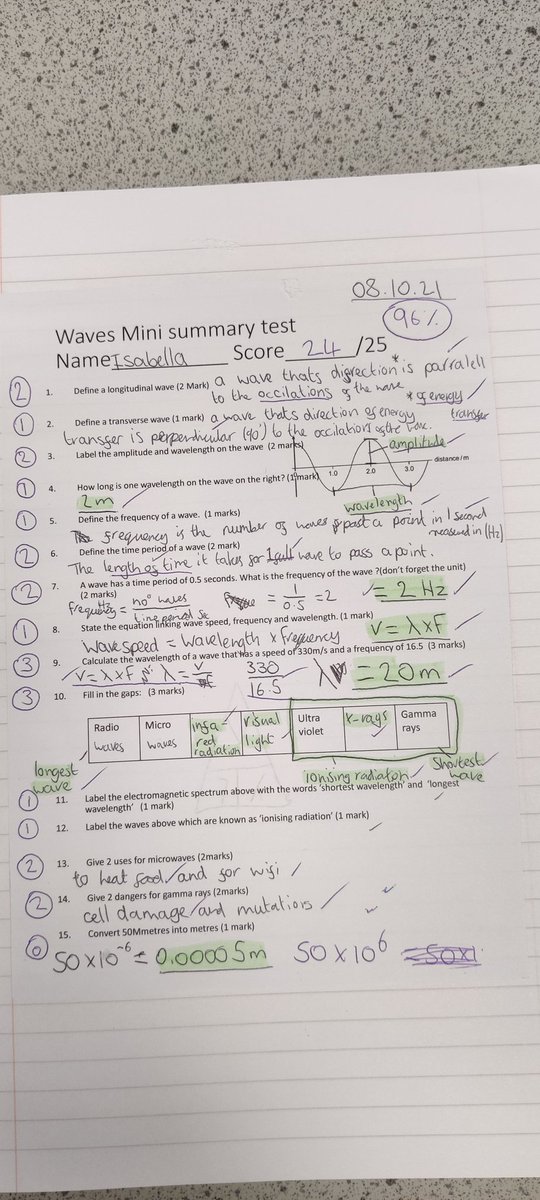 08.10.21
96%
Waves Mini summary test
Name Isabella Score 24 /25
2 1. Define a longitudinal wave (2 Mark) a wave thats direction * is parralell
to the occilations of the wave * of energy transfer
1 2. Define a transverse wave (1 mark) a wave thats direction of energy
transfer is perpendicular (90°) to the occilations of the wave.
2 3. Label the amplitude and wavelength on the wave (2 marks)
amplitude
1.0 2.0 3.0 distance/m
1 4. How long is one wavelength on the wave on the right? (1 mark)
2m
wavelength
1 5. Define the frequency of a wave. (1 marks)
frequency is the number of waves past a point in 1 second
measured in (Hz)
2 6. Define the time period of a wave (2 marks)
The length of time it takes for 1 full wave to pass a point.
2 7. A wave has a time period of 0.5 seconds. What is the frequency of the wave ?(don't forget the unit)
(2 marks)
Frequency Hz = no° waves / time period = 1/0.5 = 2 = 2 Hz
1 8. State the equation linking wave speed, frequency and wavelength. (1 mark)
Wave speed = wavelength x frequency V = λ x F
3 9. Calculate the wavelength of a wave that has a speed of 330m/s and a frequency of 16.5 (3 marks)
V = λ x F λ = V/F 330/16.5 λ = 20m
3 10. Fill in the gaps: (3 marks)
Radio waves
Micro waves
infa-red radiation
visual light
Ultra violet
X-rays
Gamma rays
longest wave
ionising radiation
Shortest wave
1 11. Label the electromagnetic spectrum above with the words 'shortest wavelength' and 'longest
wavelength' (1 mark)
1 12. Label the waves above which are known as 'ionising radiation' (1 mark)
2 13. Give 2 uses for microwaves (2marks)
to heat food and for wifi
2 14. Give 2 dangers for gamma rays (2marks)
cell damage and mutations
15. Convert 50Mmetres into metres (1 mark)
0 50 x 10⁻⁶ = 0.00005m 50 x 10⁶